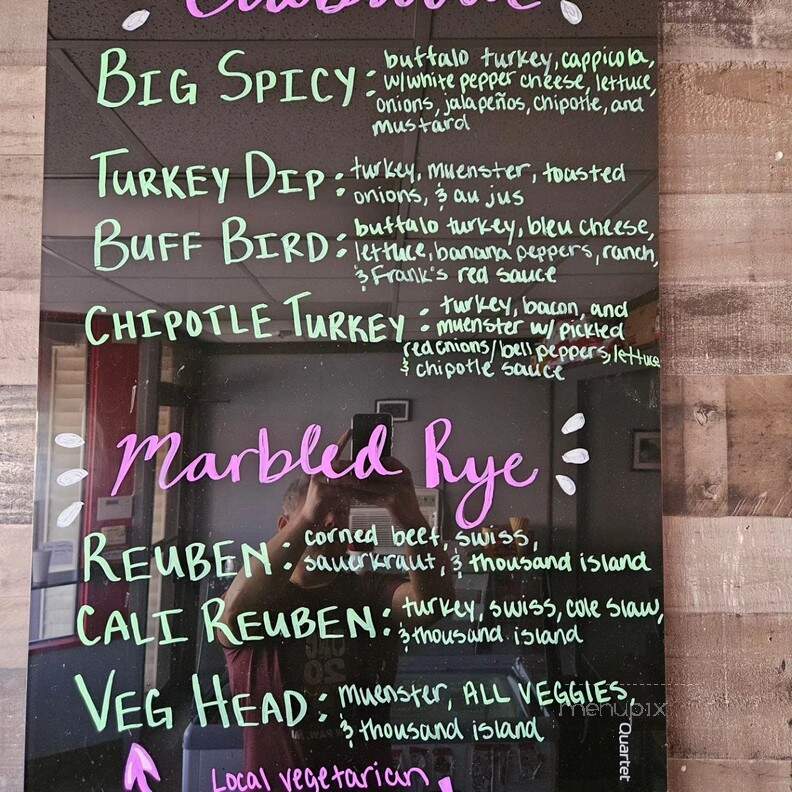 BIG SPICY: buffalo turkey, cappicola,
w/white pepper cheese, lettuce,
onions, jalapeños, chipotle, and
mustard
TURKEY DIP: turkey, muenster, toasted
onions, & au jus
BUFF BIRD: buffalo turkey, bleu cheese,
lettuce, banana peppers, ranch,
& Frank's red sauce
CHIPOTLE TURKEY: turkey, bacon, and
muenster w/ pickled
red onions/bell peppers, lettuce
& chipotle sauce
Marbled Rye
REUBEN: corned beef, swiss,
sauerkraut, & thousand island
CALI REUBEN: turkey, swiss, cole slaw,
& thousand island
VEG HEAD: muenster, ALL VEGGIES,
& thousand island
menupix
Quartet
Local vegetarian